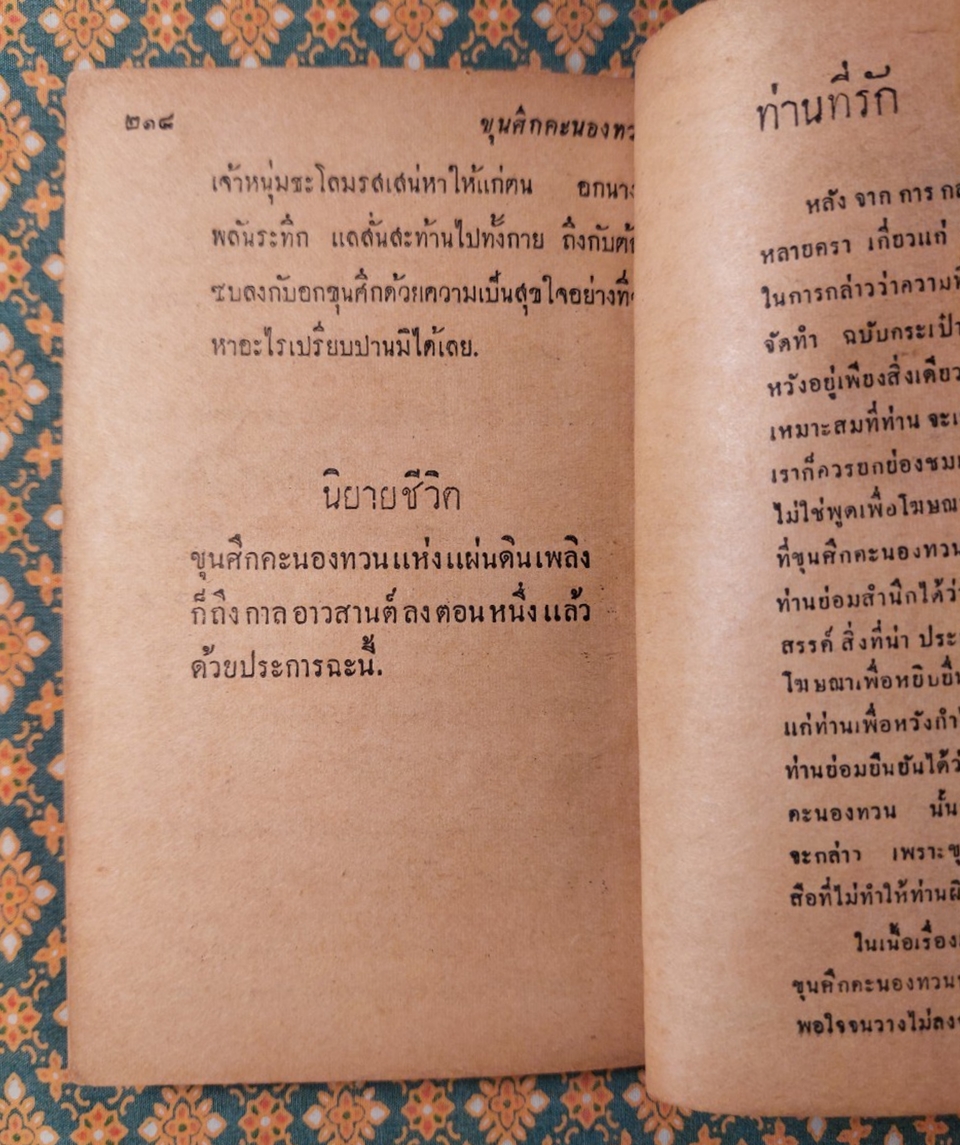 ๒๓๘
ขุนศึกคะนองทว
เจ้าหนุ่มชะโลมรสเสน่หาให้แก่ตน อกนาง
พลันระทึก แลสั่นสะท้านไปทั้งกาย ถึงกับ
ซบลงกับอกขุนศึกด้วยความเป็นสุขใจอย่างที่
หาอะไรเปรียบปานมิได้เลย.
นิยายชีวิต
ขุนศึกคะนองทวนแห่งแผ่นดินเพลิง
ก็ถึงกาลอาวสานต์ลงตอนหนึ่งแล้ว
ด้วยประการฉะนี้.
ท่านที่รัก
หลัง จาก การ กล
หลายครา เกี่ยวแก่
ในการกล่าวว่าความ
จัดทำ ฉบับกระเป๋า
หวังอยู่เพียงสิ่งเดียว
เหมาะสมที่ท่าน จะ
เราก็ควรยกย่องชม
ไม่ใช่พูดเพื่อโฆษณ
ที่ขุนศึกคะนองทวน
ท่านย่อมสำนึกได้ว่
สรรค์ สิ่งที่น่า ประ
โฆษณาเพื่อหยิบยื่
แก่ท่านเพื่อหวังกำ
ท่านย่อมยืนยันได้ว่
คะนองทวน นั้น
จะกล่าว เพราะขุ
สือที่ไม่ทำให้ท่านผิ
ในเนื้อเรื่อง
ขุนศึกคะนองทวน
พอใจจนวางไม่ลง